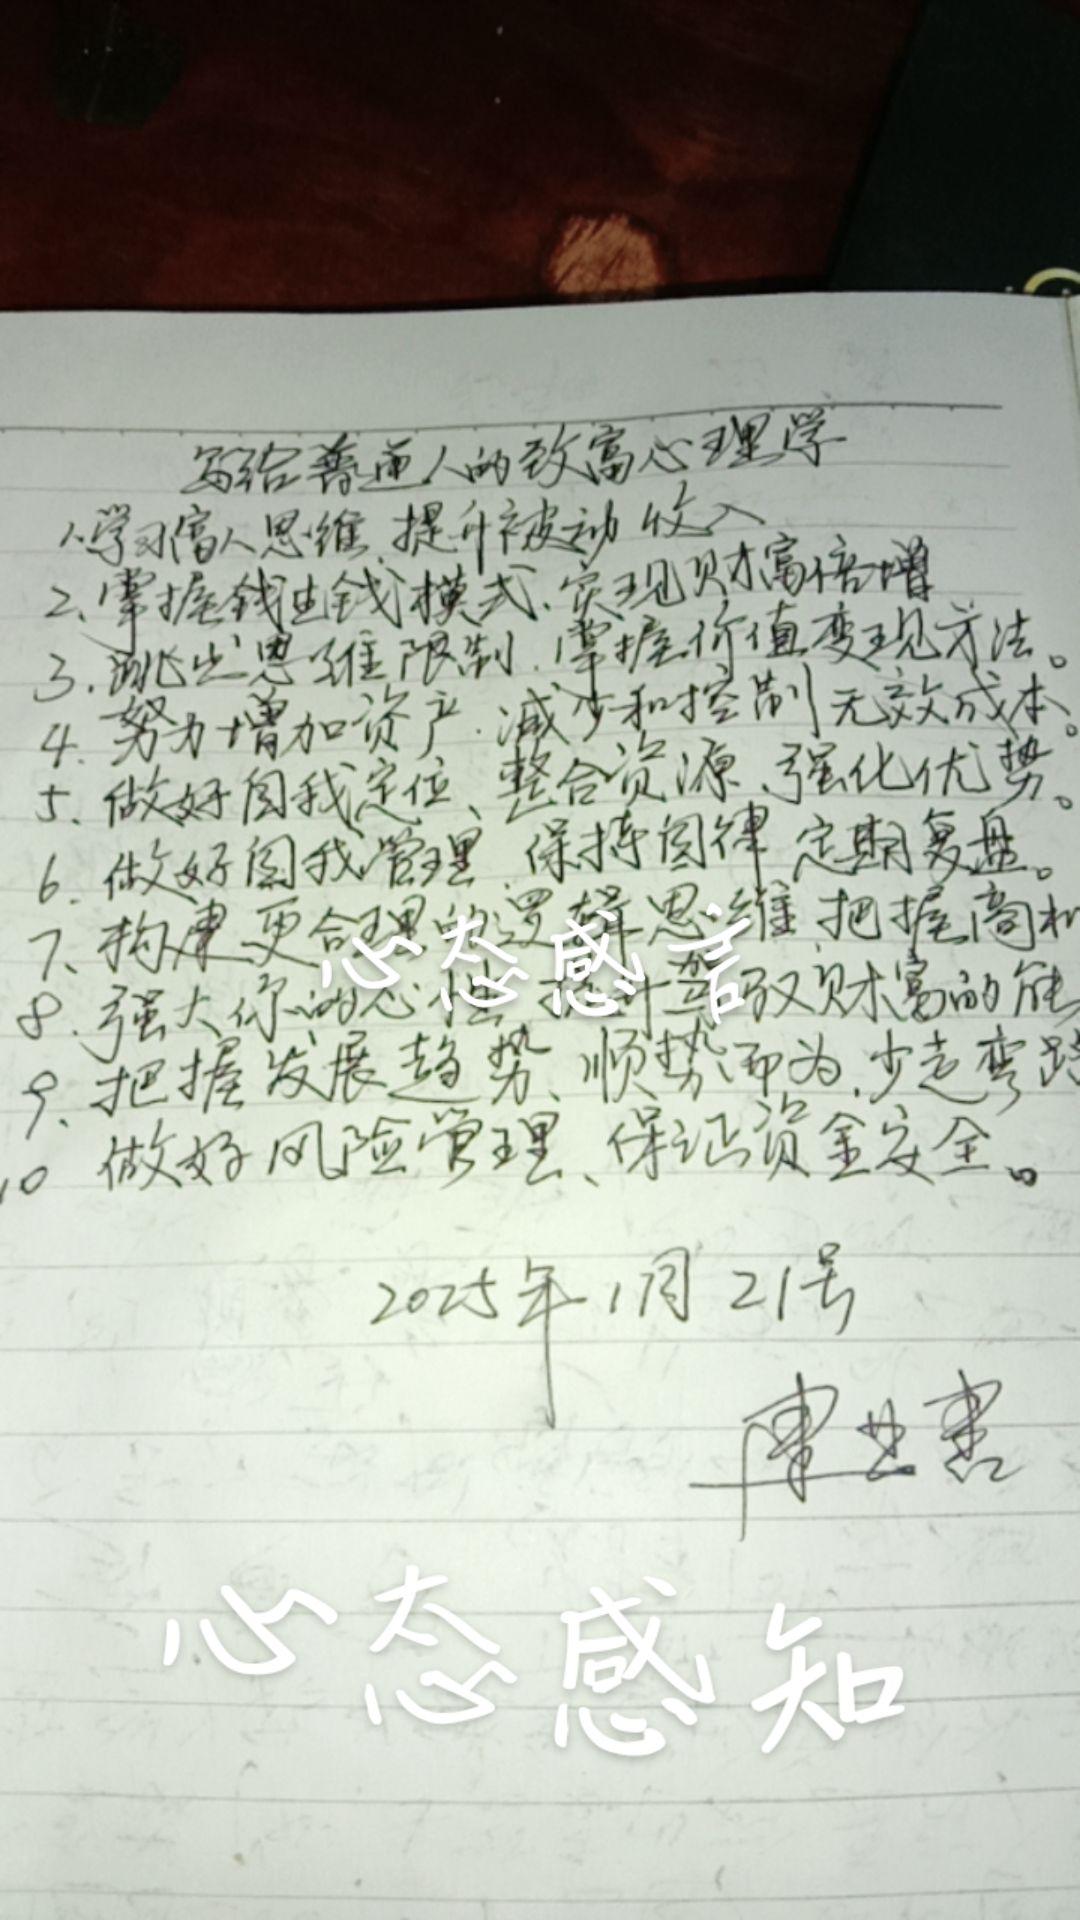 写给普通人的致富心理学
1.学习富人思维.提升被动收入
2.掌握钱生钱模式.实现财富倍增
3.跳出思维限制.掌握价值变现方法。
4.努力增加资产.减少和控制无效成本。
5.做好自我定位、整合资源、强化优势。
6.做好自我管理 保持自律 定期复盘。
7、构建更合理的逻辑思维 把握商机
心态感言
8.强大你的心性 提升驾驭财富的能
9、把握发展趋势、顺势而为.少走弯路
10 做好风险管理、保证资金安全。
2025年1月21号
心态感知